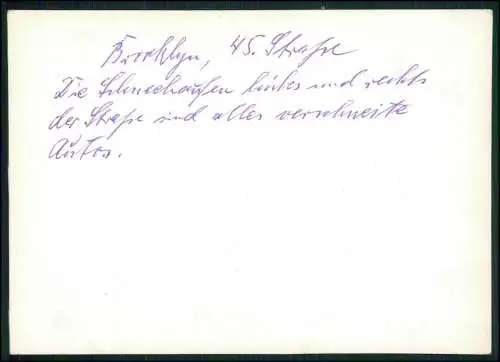 Brooklyn, 45. Straße
Die Schneehaufen links und rechts
der Straße sind alles verschneite
Autos.